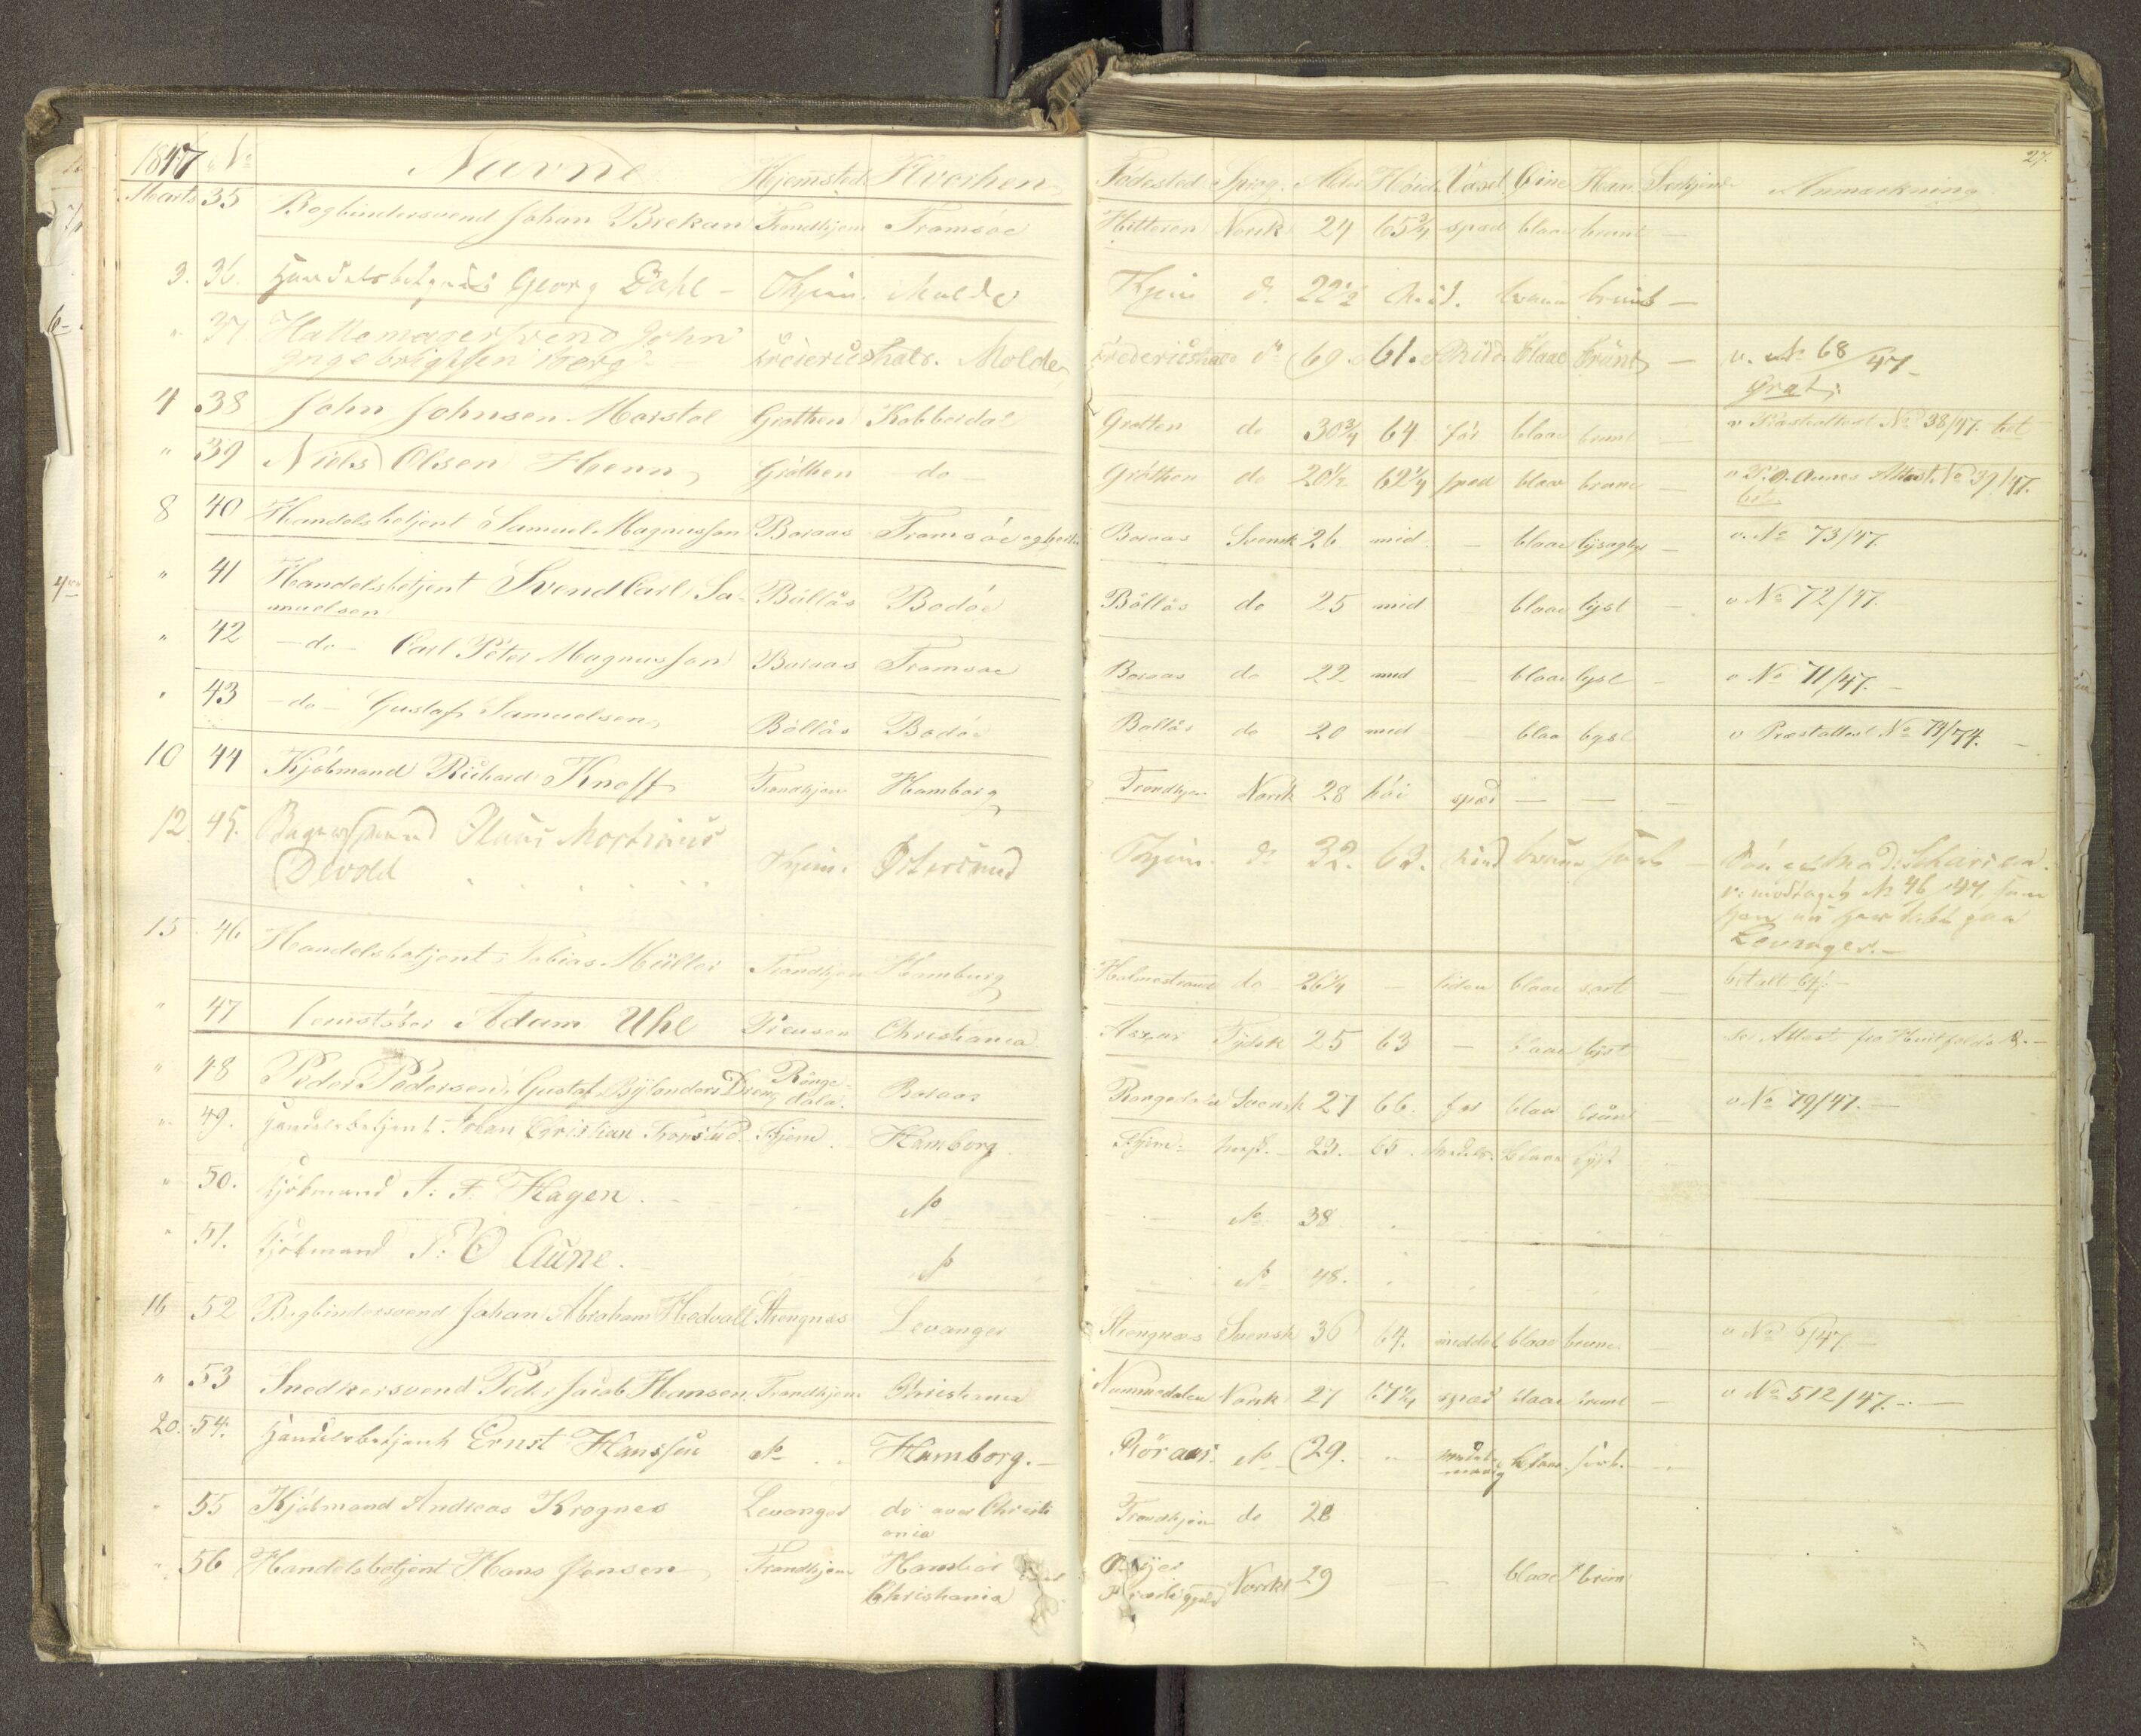 27.
1847 No Navne Hjemsted Hvorhen Fødested Sprog Alder Höide Væxt Öine Haar Særkjende Anmærkning
Marts 35 Bogbindersvend Johan Brekan Trondhjem Tromsöe Hitteren Norsk 24 65¾ spæd blaae brunt —
3. 36. Handelsbetjent Georg Dahl — Thjem. Molde Thjem do 22½ Mid. bruun bruunt —
" 37 Hattemagersvend John
Yngebrigtsen Berg Frederikshald. Molde Frederikshald do 69. 61. Mid. blaae bruunt — v. No 68/47
gratis
4 38 John Johnsen Marstol Gröthen Kobberdal Gröthen do 30¾ 64 för blaae brunt — v Præsteattest No 38/47. bet
" 39 Niels Olsen Henn Gröthen do — Gröthen do 20½ 62¼ spæd blaae brunt — v P. O. Aunes Attest. No 39/47.
bet.
8 40 Handelsbetjent Samuel Magnusson Boraas Tromsöe Boraas Svensk 26 mid. — blaae lys — v. No 73/47.
" 41 Handelsbetjent Svend Carl Sa-
muelsen Böllås Bodöe Böllås do 25 mid — blaae lyst — v No 72/47.
" 42 — do — Carl Peter Magnusson Boraas Tromsöe Boraas do 22 mid — blaae lyst — v No 71/47. —
" 43 — do — Gustaf Samuelsen Böllås Bodöe Bollås do 20 mid — blaa lyst v Præstattest No 74/74. —
10 44 Kjöbmand Richard Knoff Trondhjem Hamborg Trondhjem Norsk 28 höi spæd — — —
12. 45. Bagersvend Olaus Martinus
Devold Thjem. Östersund Thjem. do 32. 63. Mid bruun —
v: modtaget No 46/47, som
han nu har paa
Levanger. —
15 46. Handelsbetjent Tobias Müller Trondhjem Hamburg Holmestrand do — 26¼ — liden blaae sort — betalt
" 47 Adam Uhl Preusen Christiania Tydsk 25 63 — blaae lyst — se Attest fra
" 48 Peder Pedersen, Gustaf Bylanders Dreng Rånge-
dala. Boraas Rangedala Svensk 27 66. før blaae brunt — v. No 79/47. —
" 49. Handelsbetjent Johan Christian Thjem. Hamborg Thjem. norsk. 23. 65. middels. blaae lyst
" 50. Kjöbmand A: F. Hagen. do do 38
" 51. Kjöbmand P: O Aune. do do 48.
16 52 Bogbindersvend Johan Abraham Hedvall Strengnæs Levanger Strengnæs Svensk 36 64. middel blaae brune — v No 6/47 —
" 53 Snedkersvend Peder Jacob Hansen Trondhjem Christiania Nummedalen Norsk 27 67¼ spæd blaae brunt — v No 512/47. —
20. 54. Handelsbetjent Ernst Hanssen do Hamborg. — Röraas. do 29. " middel-
maadig blaae sort.
" 55 Kjöbmand Andreas Krognes Levanger do over Christi
ania Trondhjem do 28
" 56 Handelsbetjent Hans Jensen Trondhjem
Christiania Norsk 29 — — blaae brun